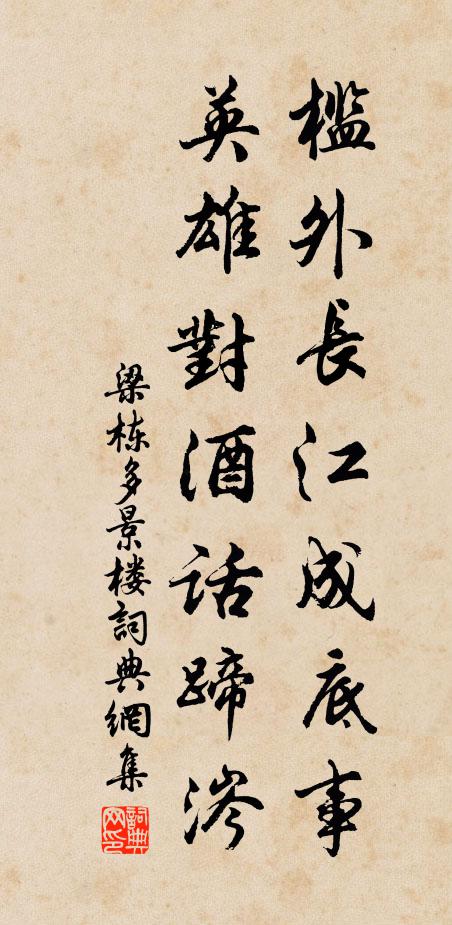 檻外長江成底事
英雄對酒話蹄涔
梁栋多景楼詞典網集
詞典網印